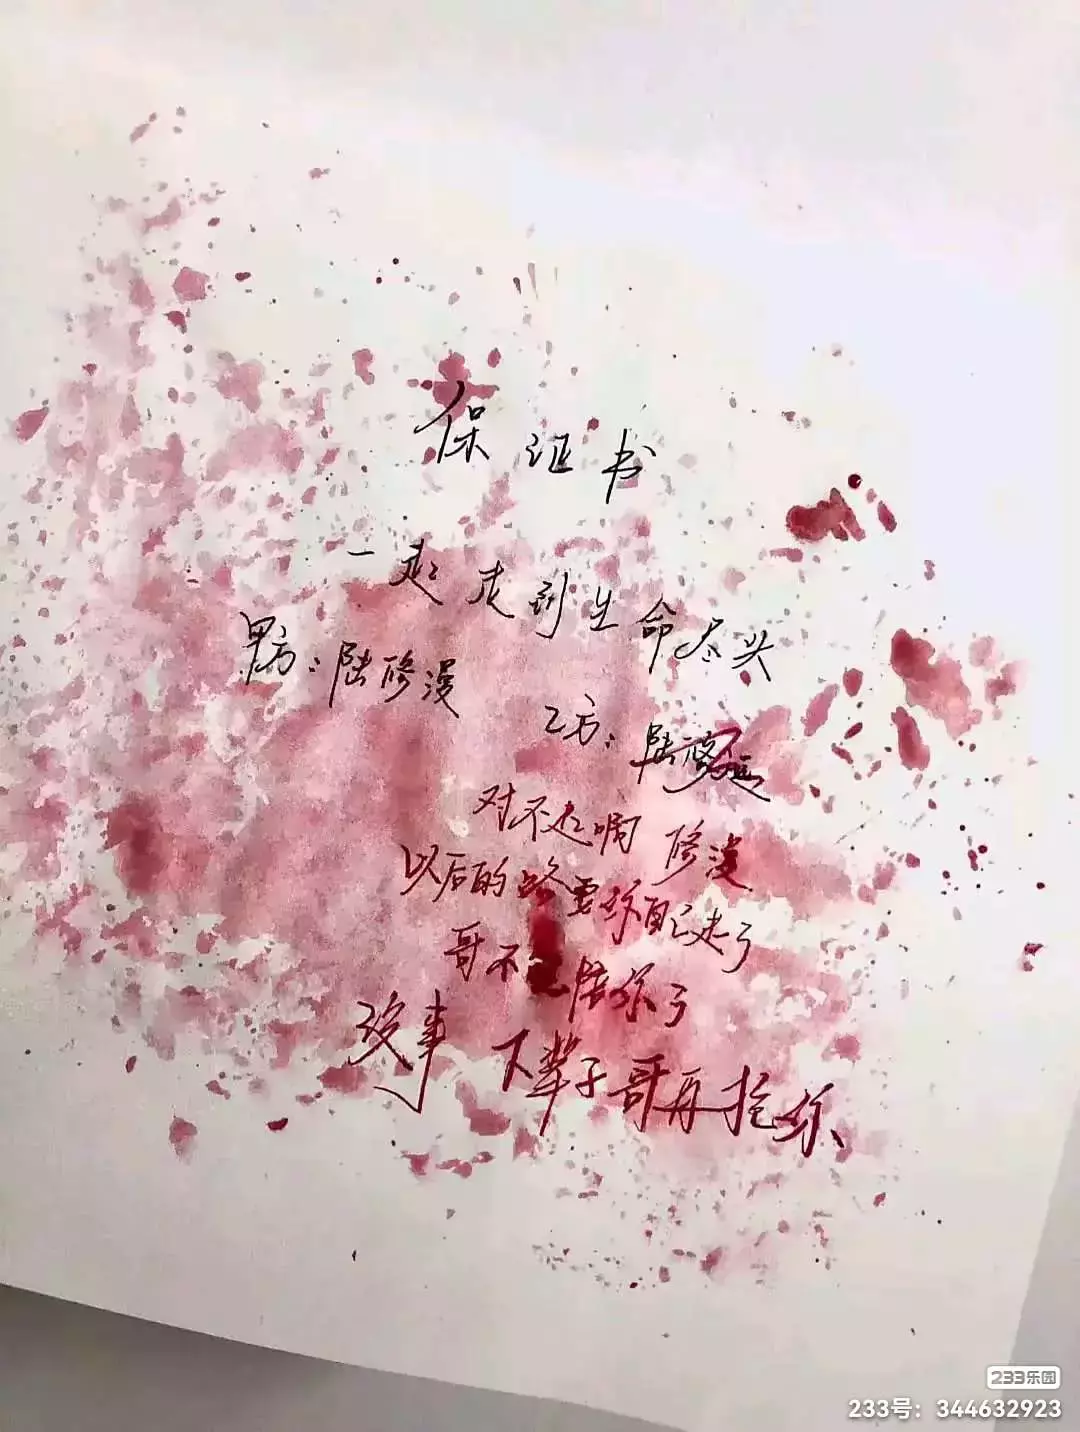 保证书
一起走到生命尽头
甲方：陆修漫 乙方：陆修远
对不起啊 修漫
以后的路要你自己走了
哥不 陪你了
没事 下辈子哥再抢你
233乐园
233号：344632923